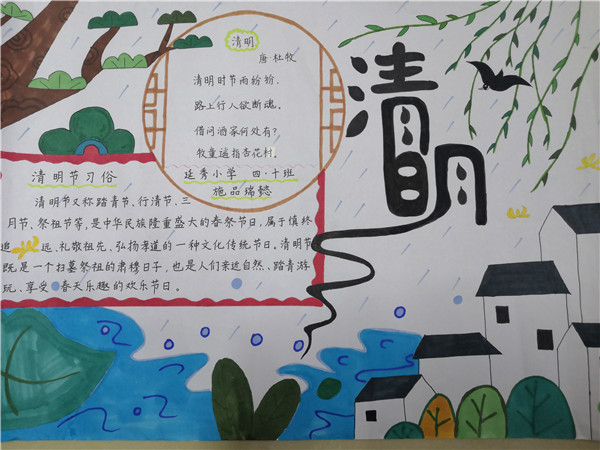 清明
唐·杜牧
清明时节雨纷纷，
路上行人欲断魂。
借问酒家何处有?
牧童遥指杏花村。
延秀小学 四·十班
施品瑞懿
清明
清明节习俗
清明节又称踏青节、行清节、三
月节、祭祖节等，是中华民族隆重盛大的春祭节日，属于慎终
追远、礼敬祖先、弘扬孝道的一种文化传统节日。清明节
既是一个扫墓祭祖的肃穆日子，也是人们亲近自然、踏青游
玩、享受春天乐趣的欢乐节日。